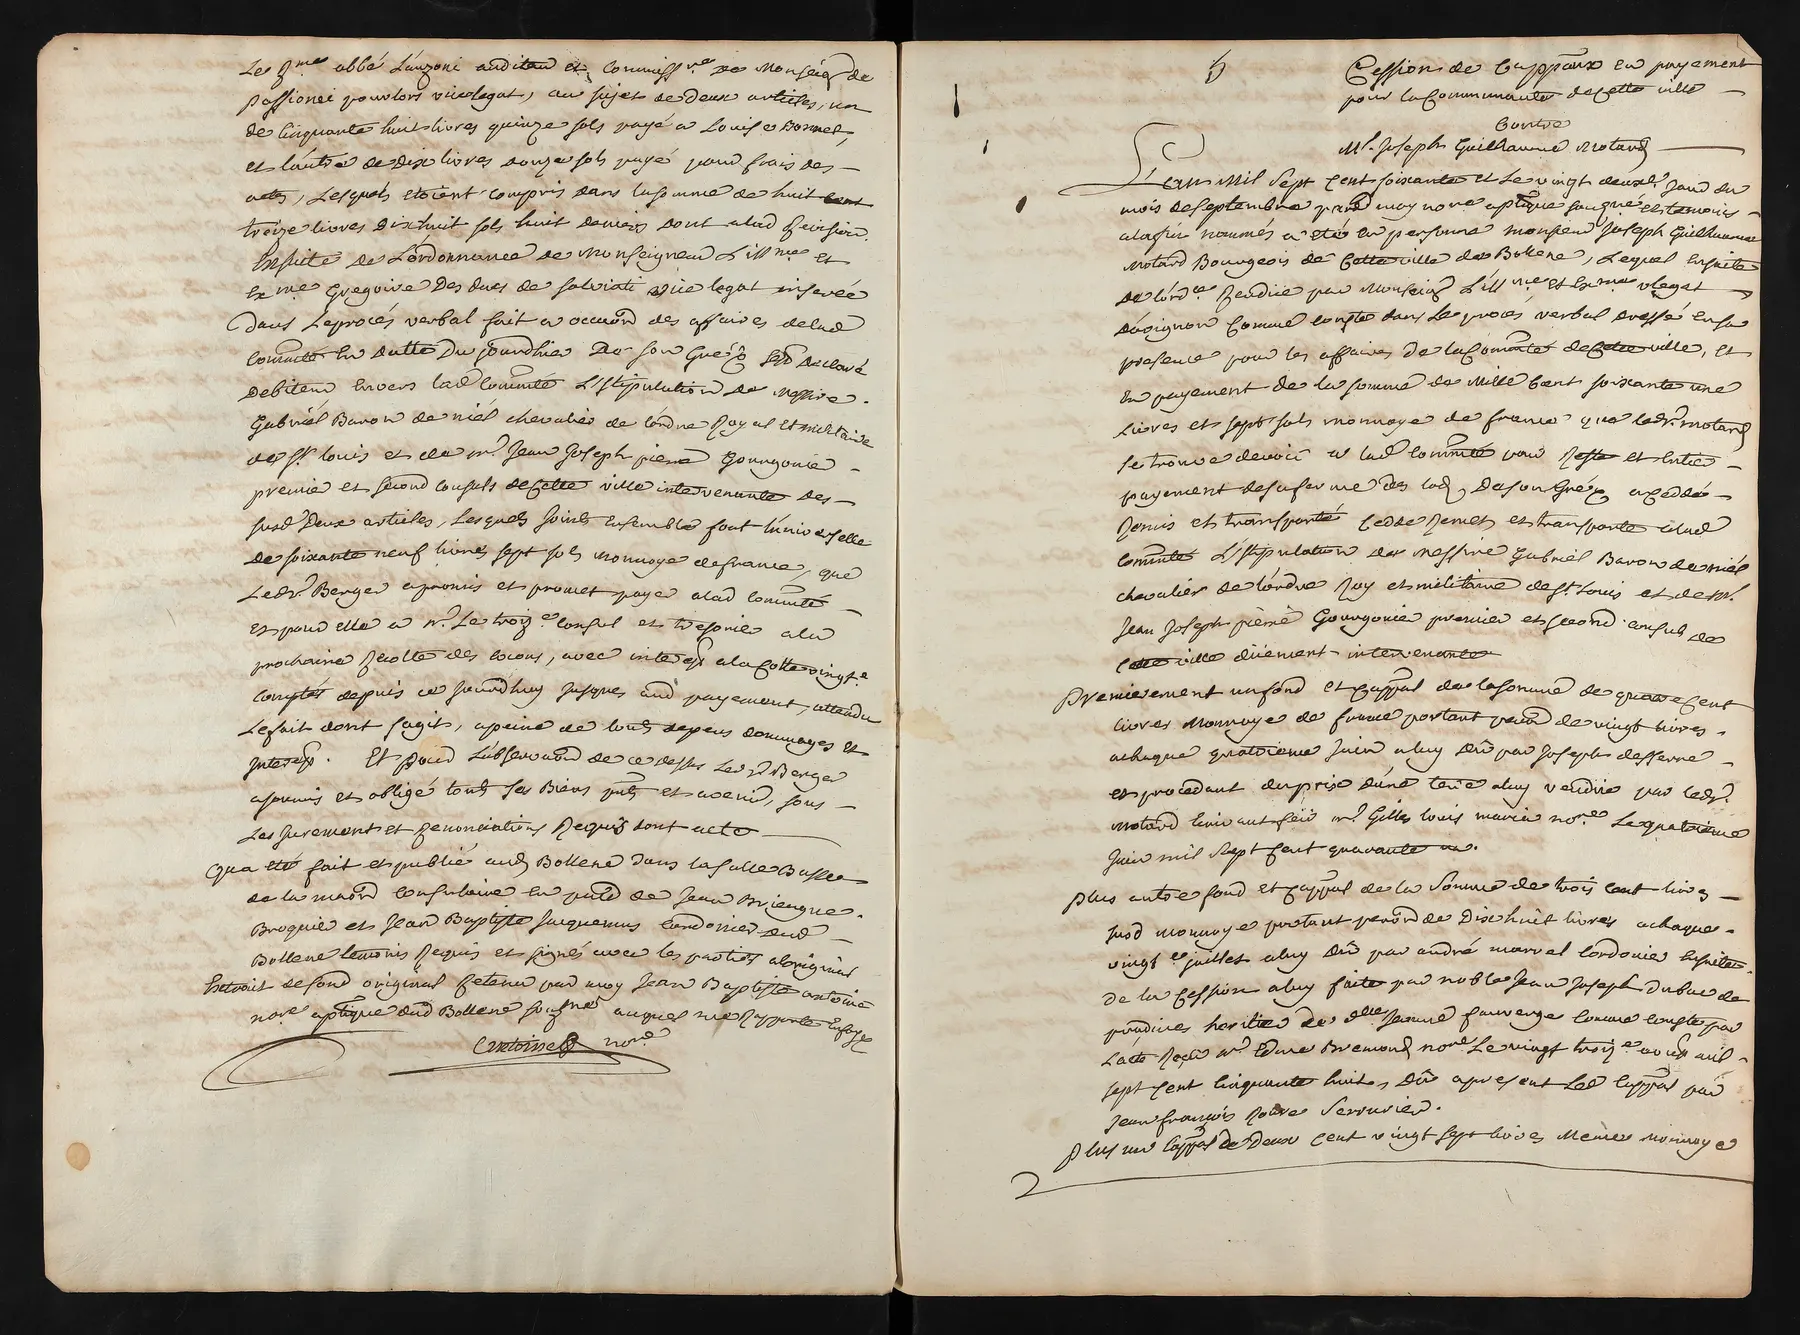 Le R.me abbé Lanzoni auditeur et commiss.re de Monseigr de
Passionei pourlors vicelegat, au sujet de deux articles, un
de Cinquante huit livres quinze sols payé a Louise Bonnet,
et l'autre de dix livres douze sols payé pour frais des
actes, Lesquels etoient compris dans la somme de huit cent
treize livres dix huit sols huit deniers dont alad.
Ensuite de L'ordonnance de Monseigneur L'ill.me et
Ex.me Gregoire Des ducs de salviati vice legat inserée
dans Le procés verbal fait a occaon des affaires delad
comm.té En datte Du jourdhuy De son Gré s'est declaré
Debiteur Envers lad Comm.té L'Stipulation de Messire
Gabriël Baron de niël chevalier de l'ordre Royal et militaire
de S.t louis et de m.r Jean Joseph pierre Gourgonie
premier et second consuls de Cette ville intervenants des
susd Deux articles, Lesquels joints Ensemble font l'universelle
de soixante neuf livres sept sols Monnoye de france, que
Led.r Berger a promis et promet payer alad Comm.té
Et pour Elle a m.r Le trois.e Consul et tresorier a la
prochaine Recolte des cocons, avec interets a la Cotte vingt.e
Comptés depuis ce jourdhuy jusques aud payement, attendu
Le fait dont s'agit, a peine de tous depens dommages et
Interets. Et pour L'observaon de ce dessus Led.r Berger
a soumis et obligé tous ses Biens pnts et avenir, sous
Les Jurements et Renonciations Requis dont acte
Qua été fait et publié aud Bollene dans la salle Basse
de la maison Consulaire En pnce de Jean
Broquié et Jean Baptiste Jacquemus Cordonier dud
Bollene temoins Requis et signés avec les parties aloriginal
Extrait de sond original Retenu par moy Jean Baptiste antoine
no.re aptique dud Bollene sousné auquel me Rapporte En foy
Antoine no.re
5
Cession de Cappaux en payement
pour la Communauté de Cette ville
Contre
M.r Joseph Guilhaume Motard
L'an Mil Sept Cent soixante et Le vingt deux.e Jour du
mois de Septembre pard moy no.re aptique sousné et temoins
a la fin nommés a eté En personne monsieur Joseph Guilhaume
Motard Bourgeois de Cette ville de Bollene, Lequel Ensuite
de l'ord.ce Rendüe par Monseigr L'ill.me et Ex.me vlegat
D'avignon Comme Conste dans Le procés verbal Dressé En sa
presence pour les affaires de la Comm.té de Cette ville, et
En payement de la somme de Mille Cent soixante une
Livres et sept sols monnoye de france que led.r motard
se trouve devoir a lad Comm.té pour Reste et Entier
payement de sa ferme des lods, De son Gré a cedé
Remis et transporté Cede Remet et transporte alad
Comm.té L'Stipulation de Messire Gabriël Baron de niël
chevalier de l'ordre Roy et militaire de S.t Louis et de M.r
Jean Joseph pierre Gourgonie premier et second consuls de
Cette ville düement intervenants
Premierement un fond et Cappal de la somme de quatre Cent
livres Monnoye de france portant peno͞n de vingt livres
a chaque quatrieme Juin a luy Dû par Joseph desserre
et procedant du prix d'une terre a luy vendüe par led.r
Motard Ecrivant feu m.r Gilles Louis marie no.re Le quatrieme
Juin mil Sept Cent quarante un.
Plus autre fond et Cappal de la somme de trois Cent livres
susd monnoye portant peno͞n de Dix huit livres a chaque
vingt.e juillet a luy Dû par andré marcel Cordonier Ensuite
de la Cession a luy faite par noble Jean Joseph dubac de
heritier de d.lle Jeanne fauverge Comme Conste par
L'acte Reçu m.r Bremond no.re Le vingt trois.e aoust mil
sept Cent Cinquante huit, Dû apresent Led Cappal par
Jean françois Serrurier.
Plus un Cappal de Deux Cent vingt sept livres Même Monnoye